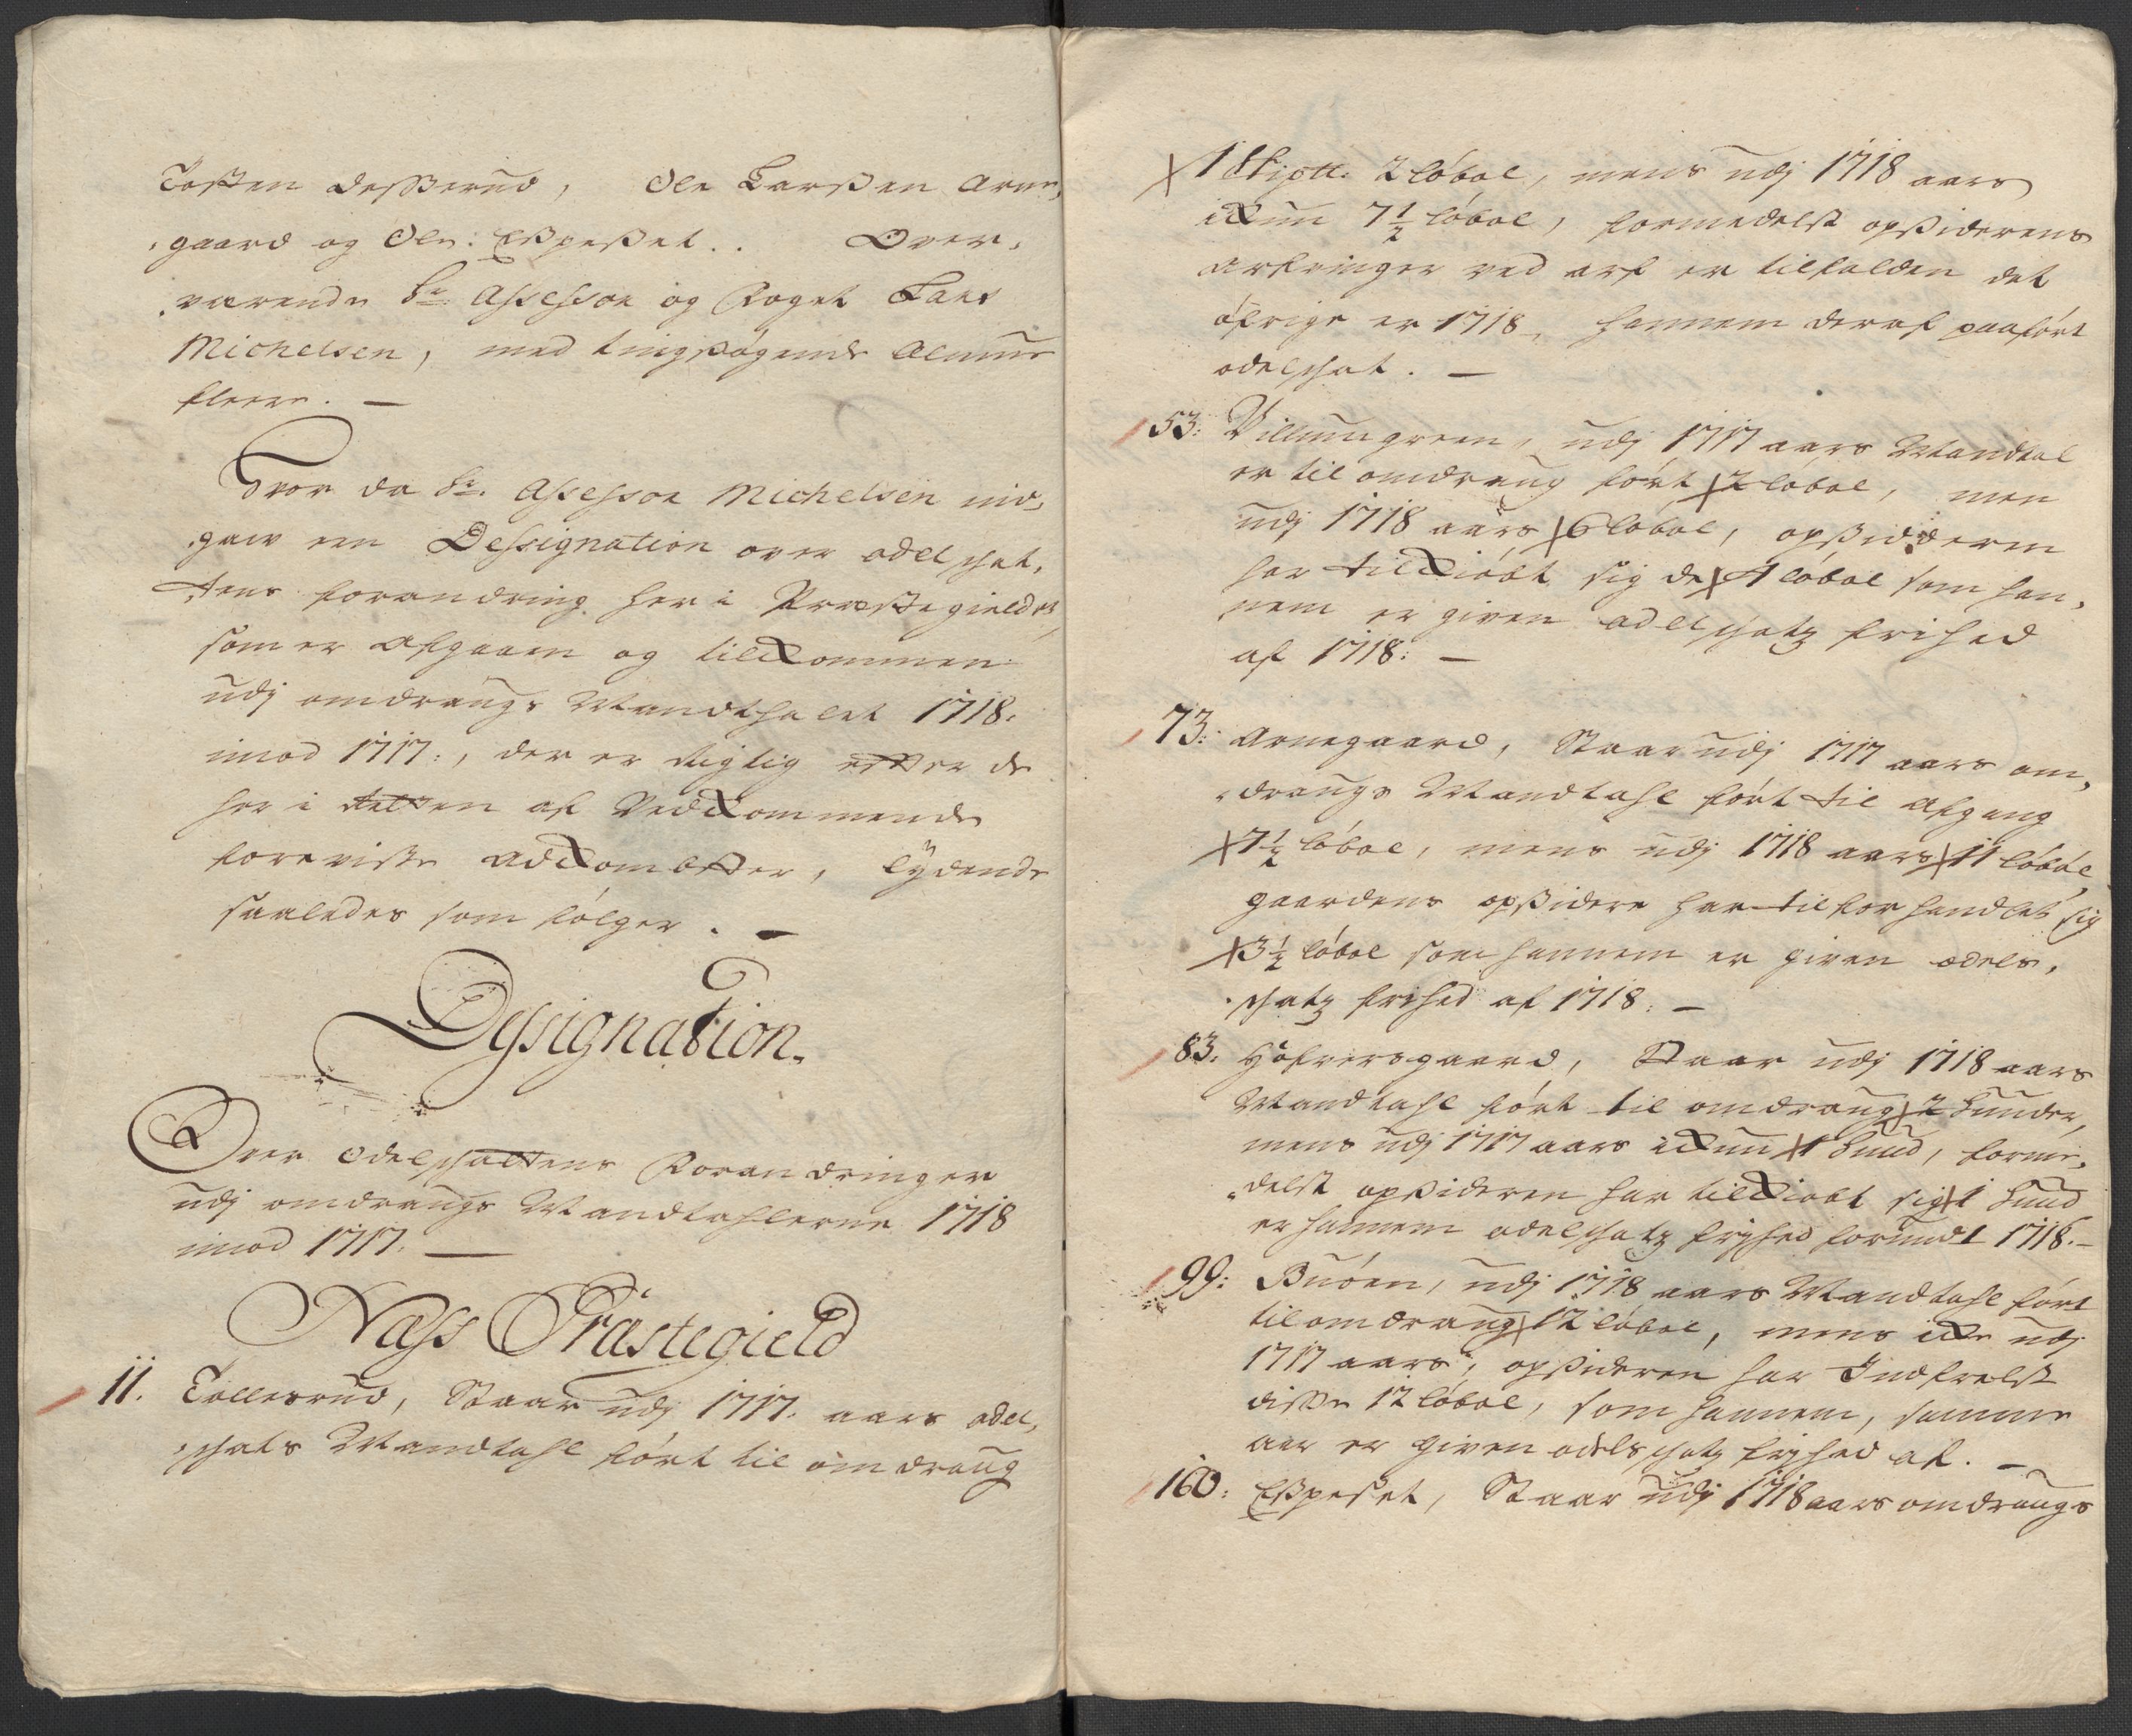 Tosten Deßerud, Ole Larßen Arne,
gaard og Ole: Eßpeset.. Over,
værende Sr. Assessor og Foget Lars
Michelsen, med tingsøgende Almue
fleere. —
Hvor da Sr. Assessor Michelsen ind,
gaw een Dessignation over odelschat,
tens forandring her i Præstegieldet
som er afgaaen og tilkommen
udj omdraugs Mandthalet 1718.
imod 1717:, der er rigtig efter de
her i Retten af Vedkommende
foreviste adkombster, lydende
saaledes som følger. —
Dessignation.
Over Odelschattens Forandringer
udj omdraugs Mandtahlerne 1718
imod 1717. —
Næss Præstegield
11. Tollesrud, Staar udj 1717. aars odel,
schats Mandtahl ført til omdraug
1 Skippt. 2 løbol, mens udj 1718 aars
ikun 7½ løbol, formedelst opsiderens
arfvinger ved arf er tilfalden det
øfrige er 1718, hannem deraf paaført
odelschat. —
53: Villumgreen, udj 1717 aars Mandtal
er til omdraug ført 2 løbol, men
udj 1718 aars 6 løbol, opsidderen
har tilkiøbt sig de 4 løbol som han,
nem er given odelschatz frihed
af 1718: —
73: Arnegaard, Staar udj 1717 aars om,
draugs Mandtahl ført til afgang
7½ løbol, mens udj 1718 aars 11 løbol,
gaardens opsidere har tilforhandlet sig
3½ løbol som hannem er given odels,
schatz frihed af 1718: —
83. Høfversgaard, Staar udj 1718 aars
Mandtahl ført til omdraug 2 Hunder,
mens udj 1717 aars ikun 1 Huud, forme,
delst opsideren har tilkiøbt sig 1 huud
er hannem odelschatz fryhed forundt 1718. —
99: Buøen, udj 1718 aars Mandtahl ført
til omdraug 12 løbol, mens icke udj
1717 aars, opsideren har Indfrelst
disse 12 løbol, som hannem, samme
aar er given odelsschatz fryhed af. —
160: Eßpeset, Staar udj 1718 aars omdraugs